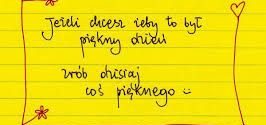 Jeżeli chcesz żeby to był
piękny dzień
zrób dzisiaj
coś pięknego :)